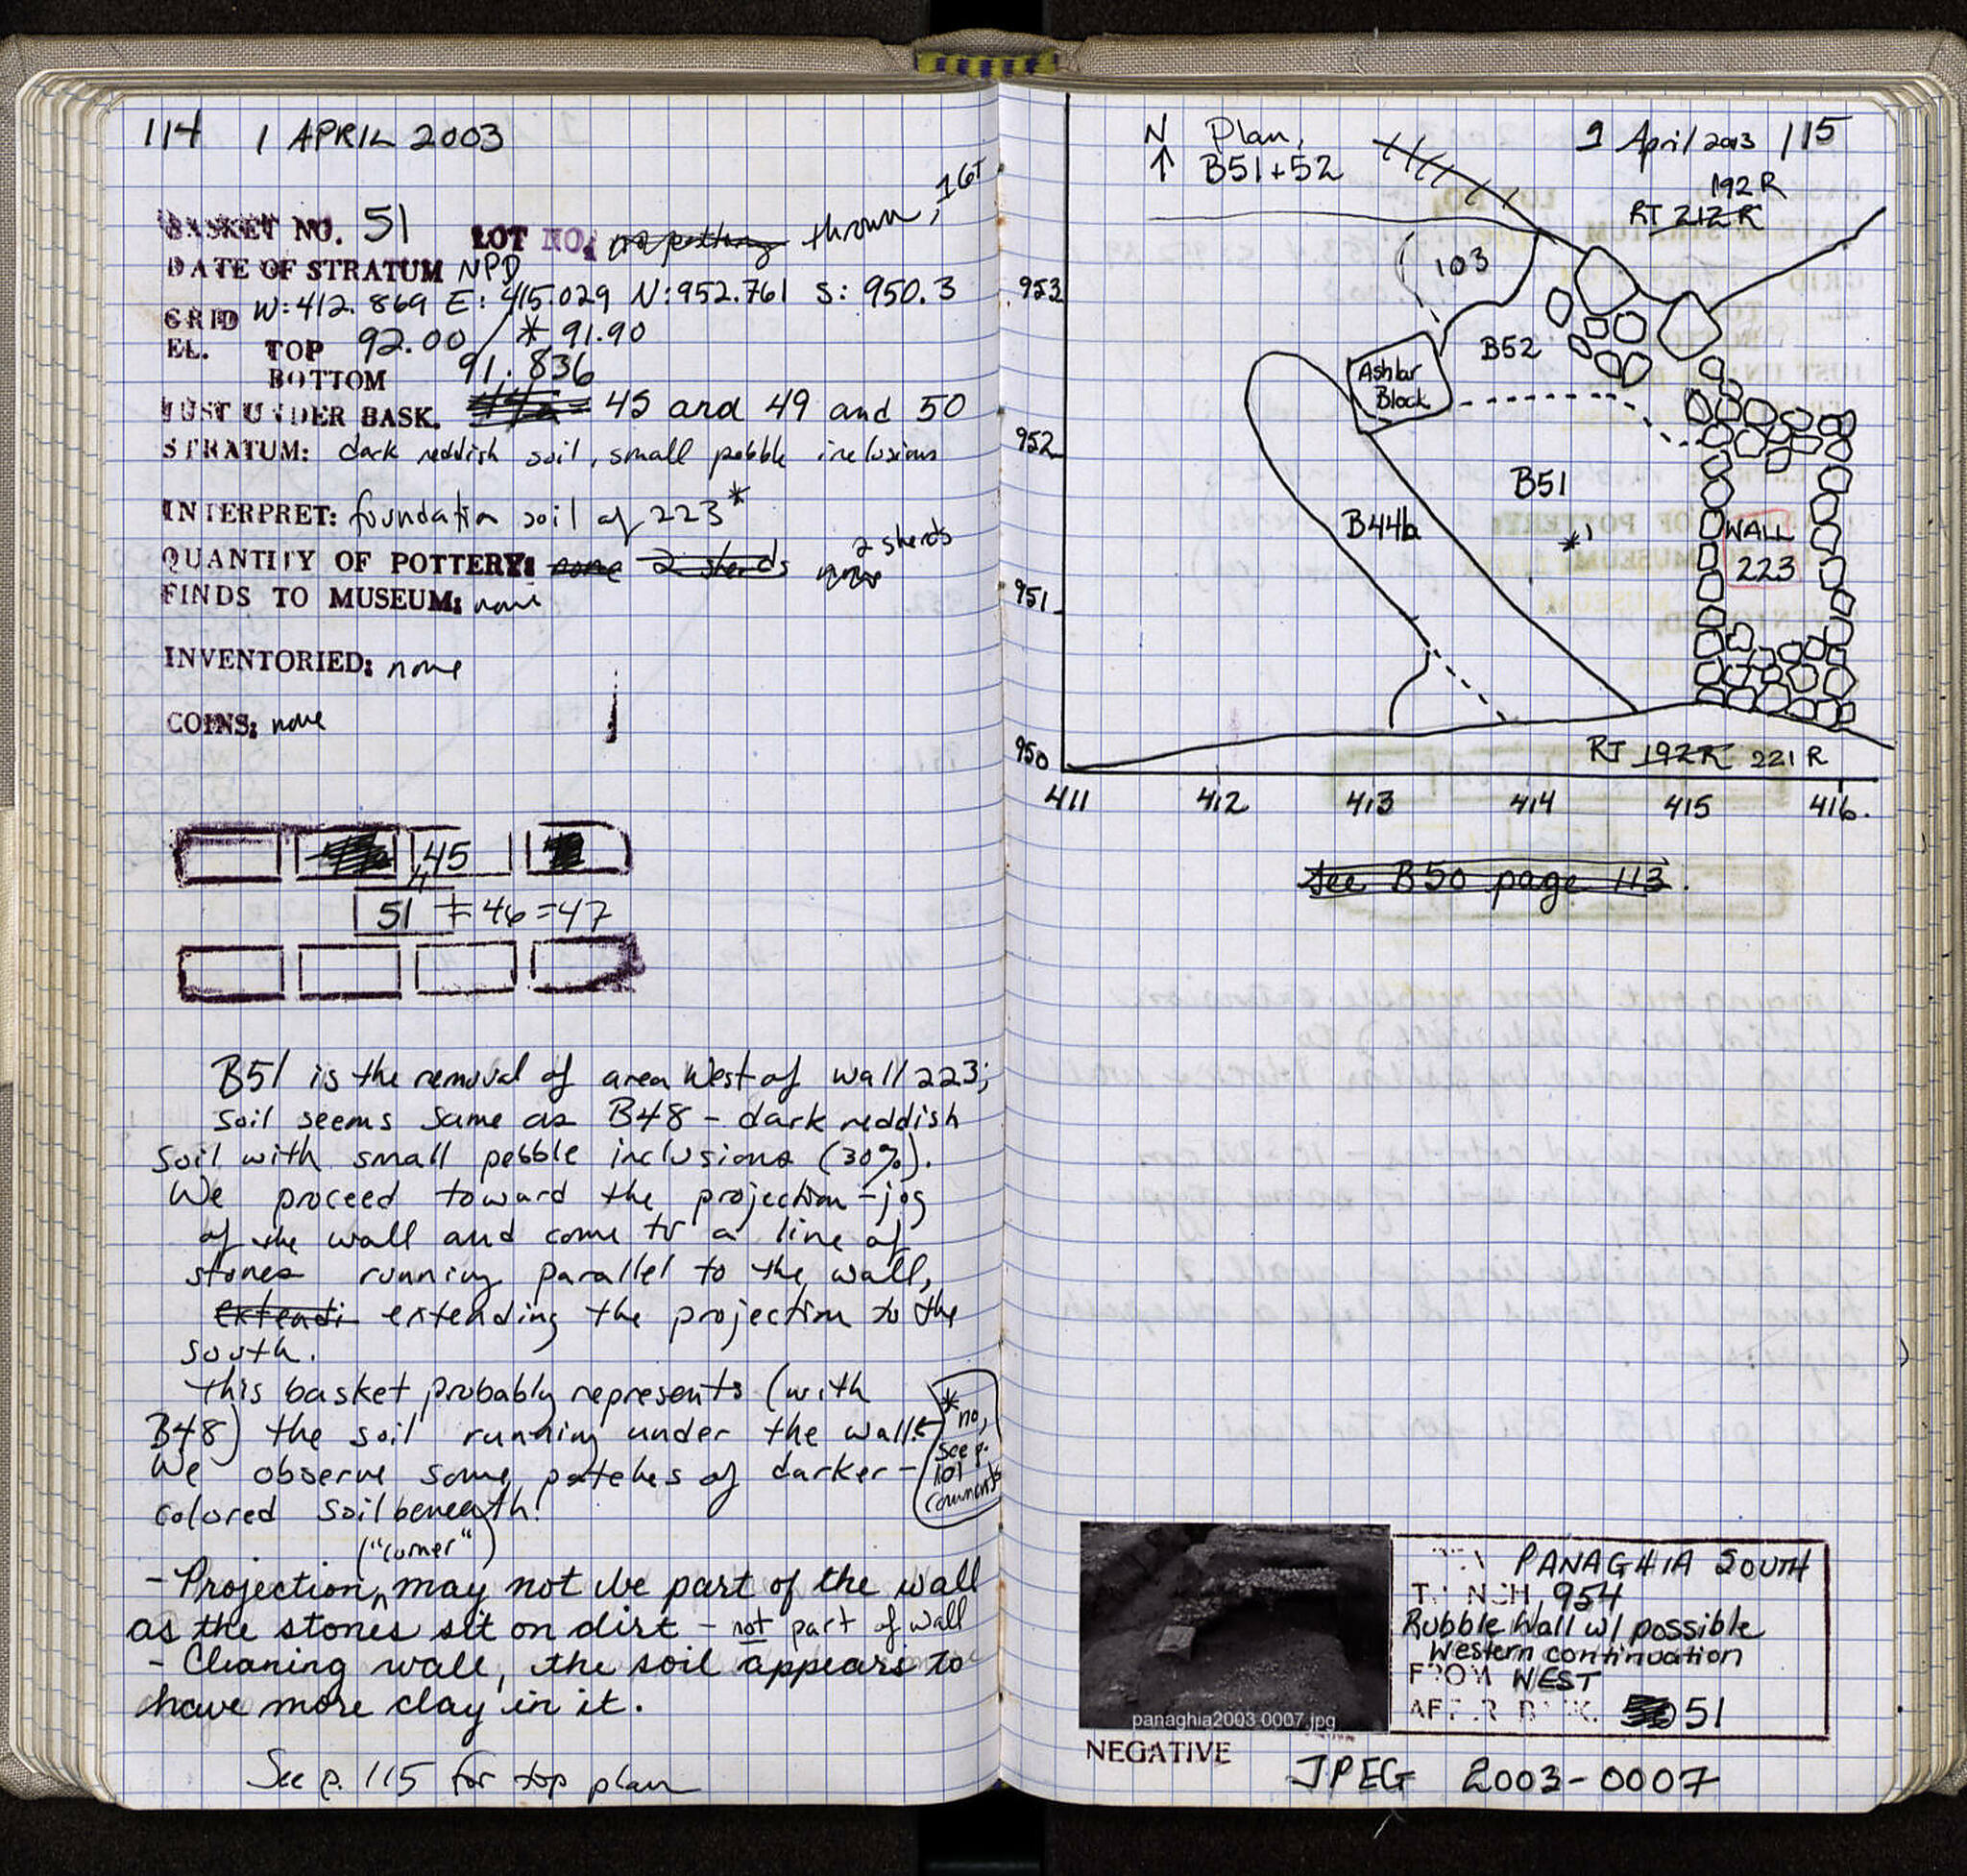 114 1 APRIL 2003
BASKET NO. 51 LOT NO. no pottery thrown, 1GT
DATE OF STRATUM NPD
GRID W:412.869 E:415.029 N:952.761 S:950.3
EL. TOP 92.00 / * 91.90
BOTTOM 91.836
JUST UNDER BASK. 45 and 49 and 50
STRATUM: dark reddish soil, small pebble inclusions
INTERPRET: foundation soil of 223*
QUANTITY OF POTTERY: none 2 sherds none 2 sherds
FINDS TO MUSEUM: none
INVENTORIED: none
COINS: none
45
51 = 46 = 47
B51 is the removal of area West of wall 223;
soil seems same as B48 - dark reddish
soil with small pebble inclusions (30%).
We proceed toward the projection - jog
of the wall and come to a line of
stones running parallel to the wall,
extendi extending the projection to the
south.
this basket probably represents (with
B48) the soil running under the wall.
* no, see p. 101 comments
We observe some patches of darker-
colored soil beneath!
("corner")
- Projection may not be part of the wall
as the stones sit on dirt - not part of wall
- Cleaning wall, the soil appears to
have more clay in it.
See p. 115 for top plan
N Plan, 9 April 2003 115
↑ B51+52
192R
RT 212R
103
953
B52
Ashlar
Block
952
B51
B44b
*1
WALL
223
951
950
RT 192R 221R
411 412 413 414 415 416.
see B50 page 113.
PANAGHIA SOUTH
TRENCH 954
Rubble Wall w/ possible
Western continuation
FROM WEST
AFTER BASK. 51
panaghia2003 0007.jpg
NEGATIVE
JPEG 2003-0007